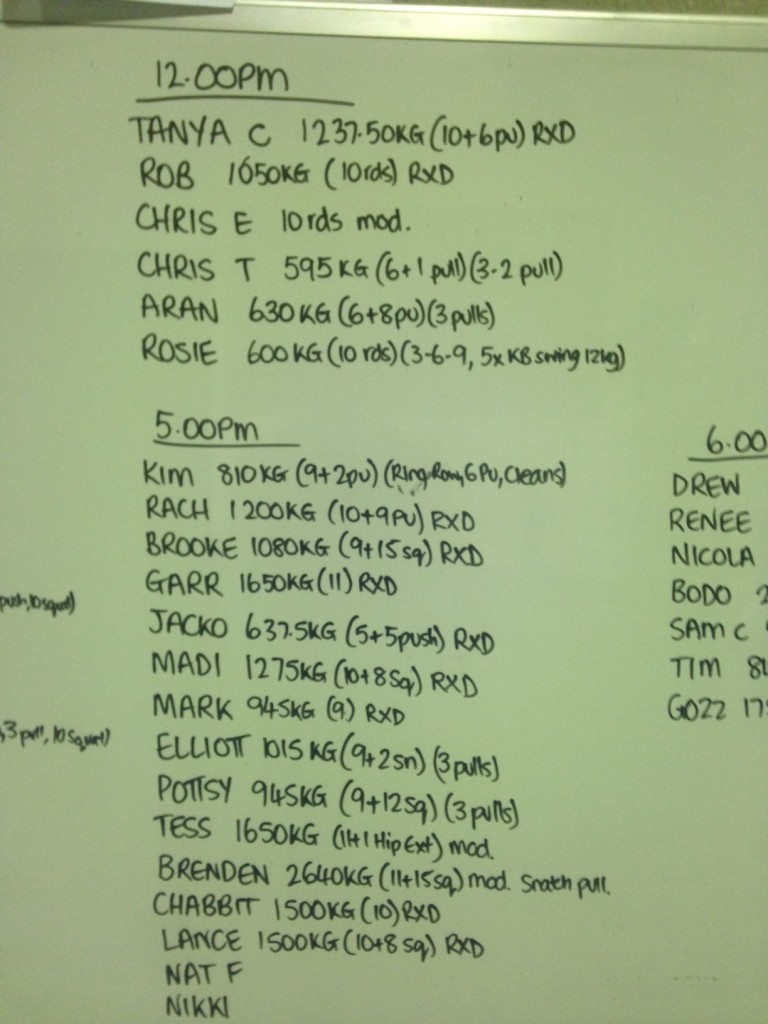 12.00PM
TANYA C 1237.50KG (10+6pu) RXD
ROB 1650KG (10rds) RXD
CHRIS E 10rds mod.
CHRIS T 595KG (6+1 pull) (3-2 pull)
ARAN 630KG (6+8pu) (3pulls)
ROSIE 600KG (10 rds) (3-6-9, 5x KB swing 12kg)
5.00pm
KIM 810KG (9+2pu) (Ring Row, 6 PU, Cleans)
RACH 1200KG (10+9PU) RXD
BROOKE 1080KG (9+15sq) RXD
GARR 1650KG (11) RXD
JACKO 637.5KG (5+5push) RXD
MADI 1275KG (10+8sq) RXD
MARK 945KG (9) RXD
ELLIOTT 1015KG (9+2sn) (3pulls)
POTTSY 945KG (9+12sq) (3pulls)
TESS 1650KG (11+1 Hip Ext) mod.
BRENDEN 2640KG (11+15sq) mod. Snatch pull.
CHABBIT 1500KG (10) RXD
LANCE 1500KG (10+8 sq) RXD
NAT F
NIKKI
push, 10squat)
, 3 pull, 10 squat)
6.00
DREW
RENEE
NICOLA
BODO 2
SAM C
TIM 81
GOZZ 175